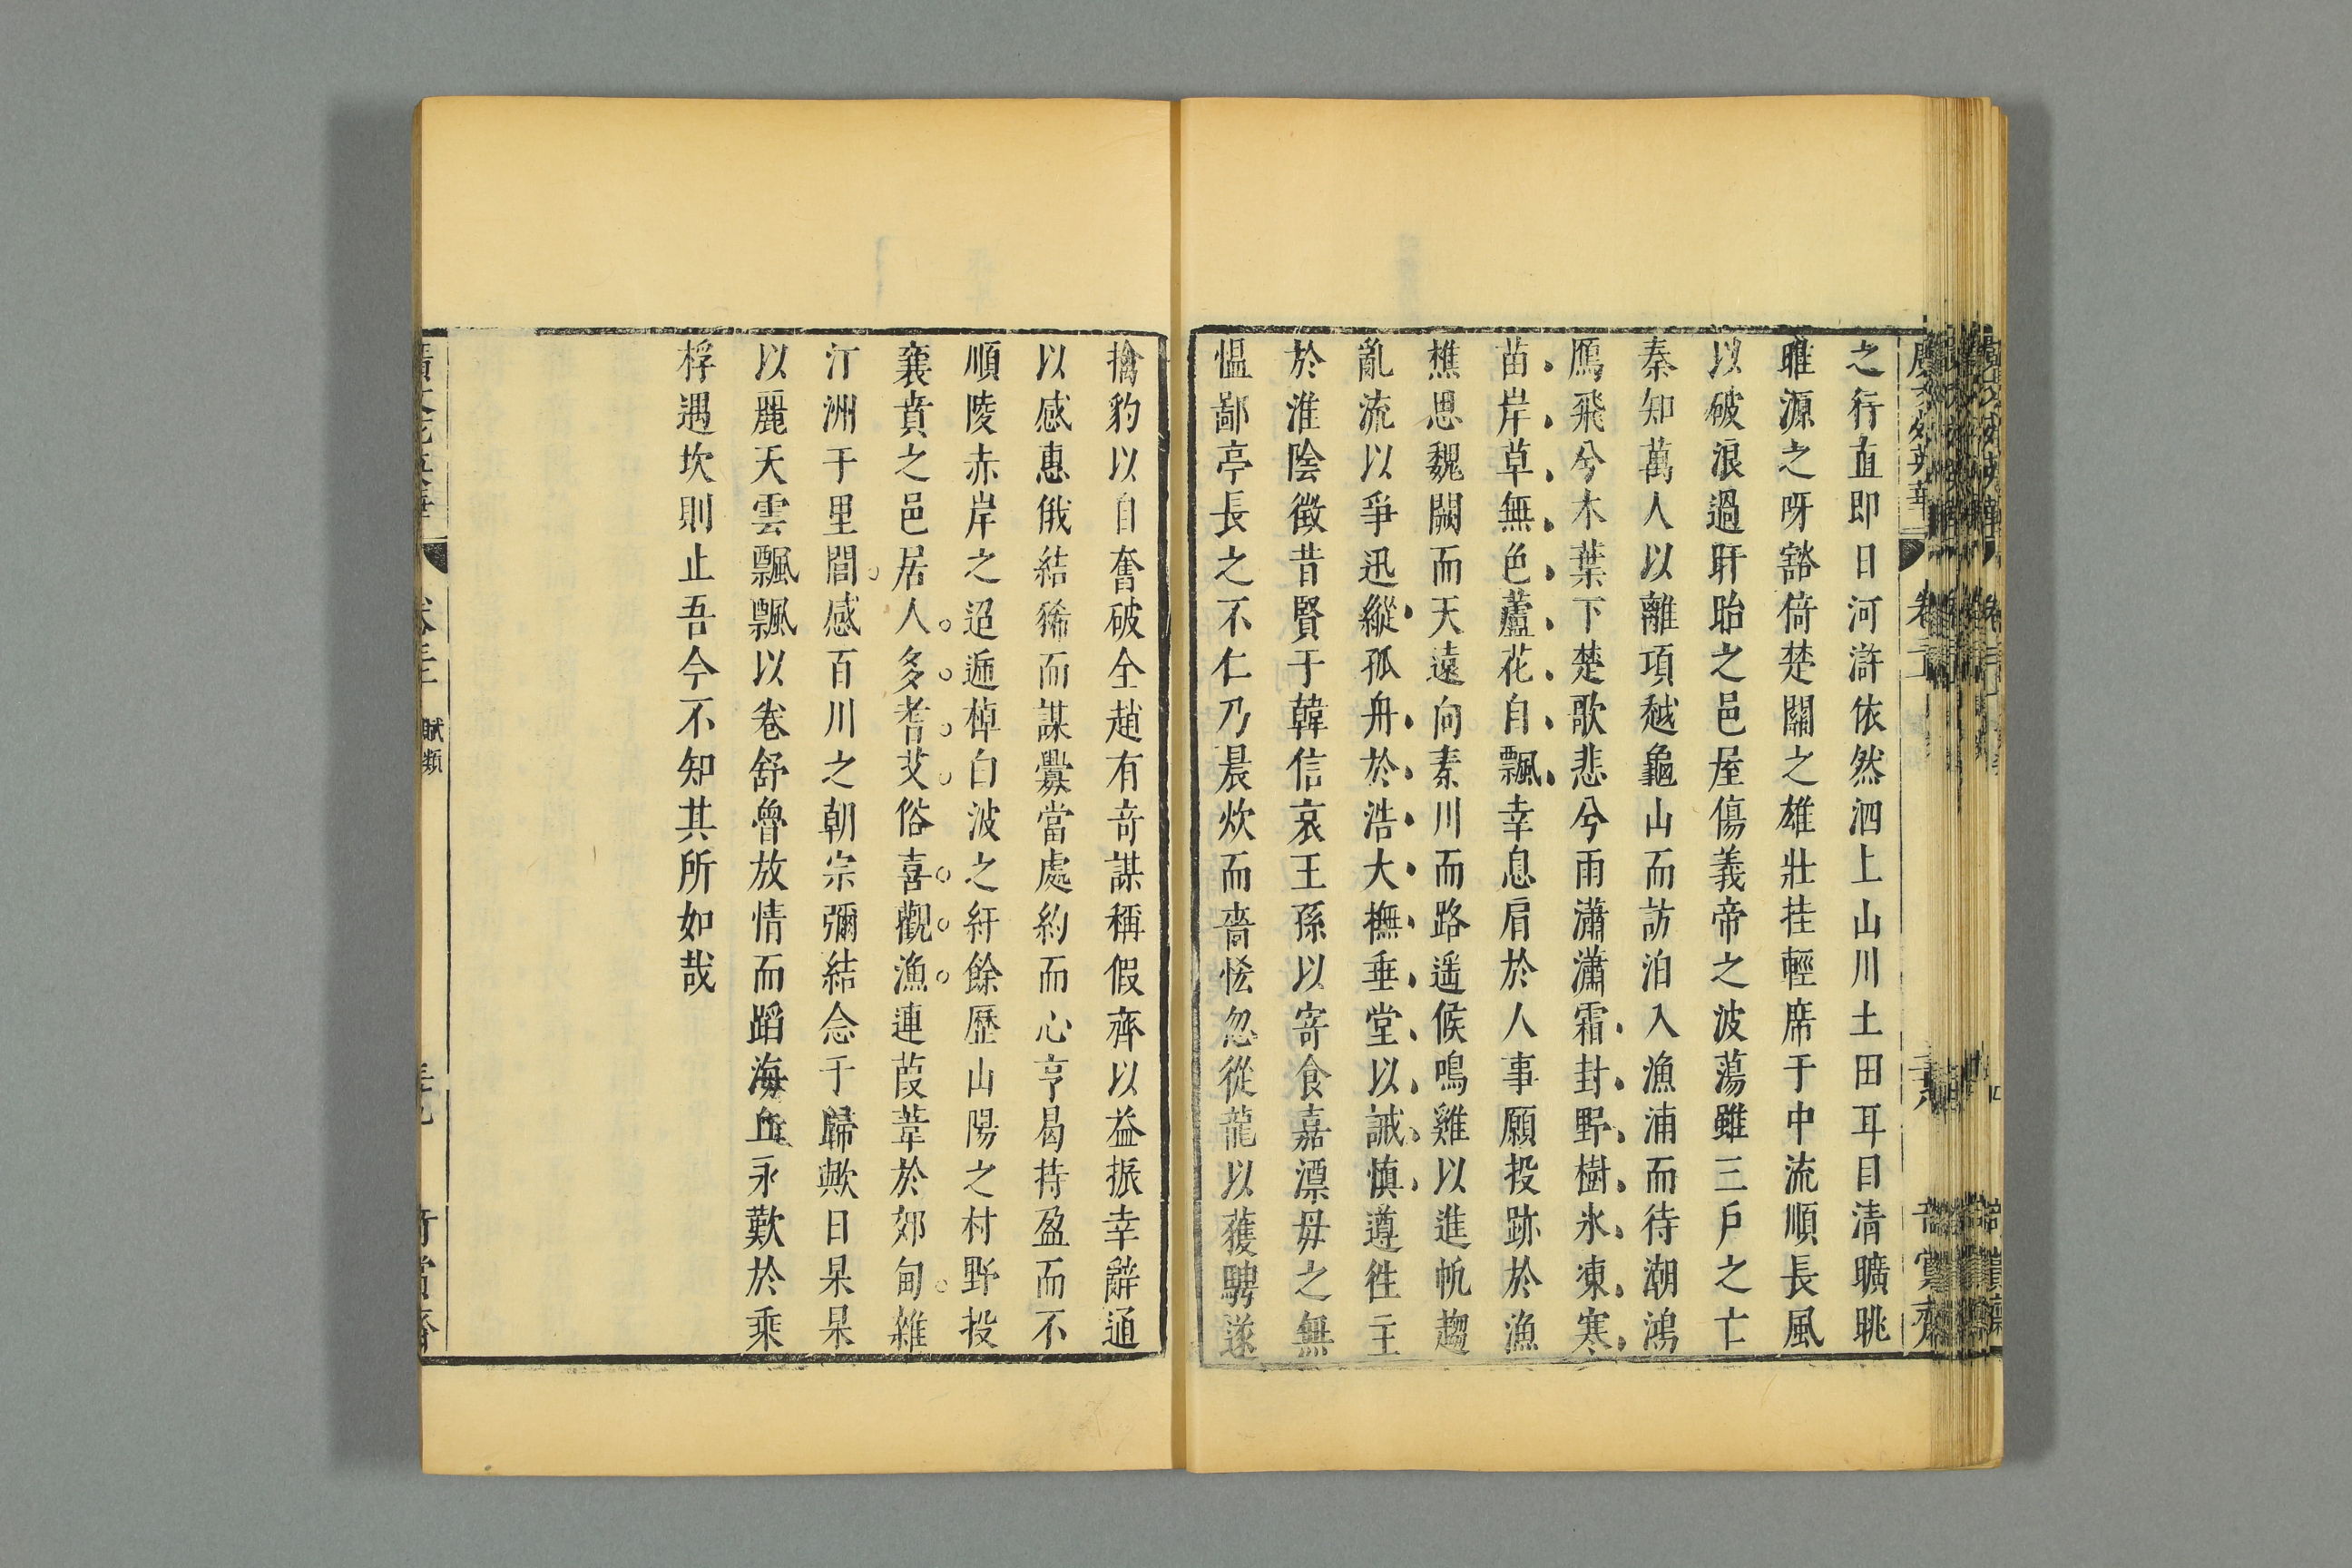 之行直即日河滸依然泗上山川土田耳目清曠眺
睢源之呀豁倚楚關之雄壯挂輕席于中流順長風
以破浪過盱眙之邑屋傷義帝之波蕩雖三戶之亡
秦知萬人以離項越龜山而訪泊入漁浦而待潮鴻
鴈飛兮木葉下楚歌悲兮雨瀟瀟霜封野樹氷凍寒
苗岸草無色蘆花自飄幸息肩於人事願投跡於漁
樵思魏闕而天遠向秦川而路遥候鳴雞以進帆趨
亂流以爭迅縱孤舟於浩大撫垂堂以誡慎遵徃主
於淮陰徵昔賢于韓信哀王孫以寄食嘉漂母之無
慍鄙亭長之不仁乃晨炊而嗇恡忽從龍以獲騁遂
擒豹以自奮破全趙有竒謀稱假齊以益振幸辭通
以感惠俄結豨而謀釁當處約而心亨曷持盈而不
順陵赤岸之迢逓棹白波之紆餘歷山陽之村野投
襄賁之邑居人多耆艾俗喜觀漁連葭葦於郊甸雜
汀洲于里閭感百川之朝宗彌結念于歸歟日杲杲
以麗天雲飄飄以卷舒魯放情而蹈海丘永歎於乘
桴遇坎則止吾今不知其所如哉
賦類